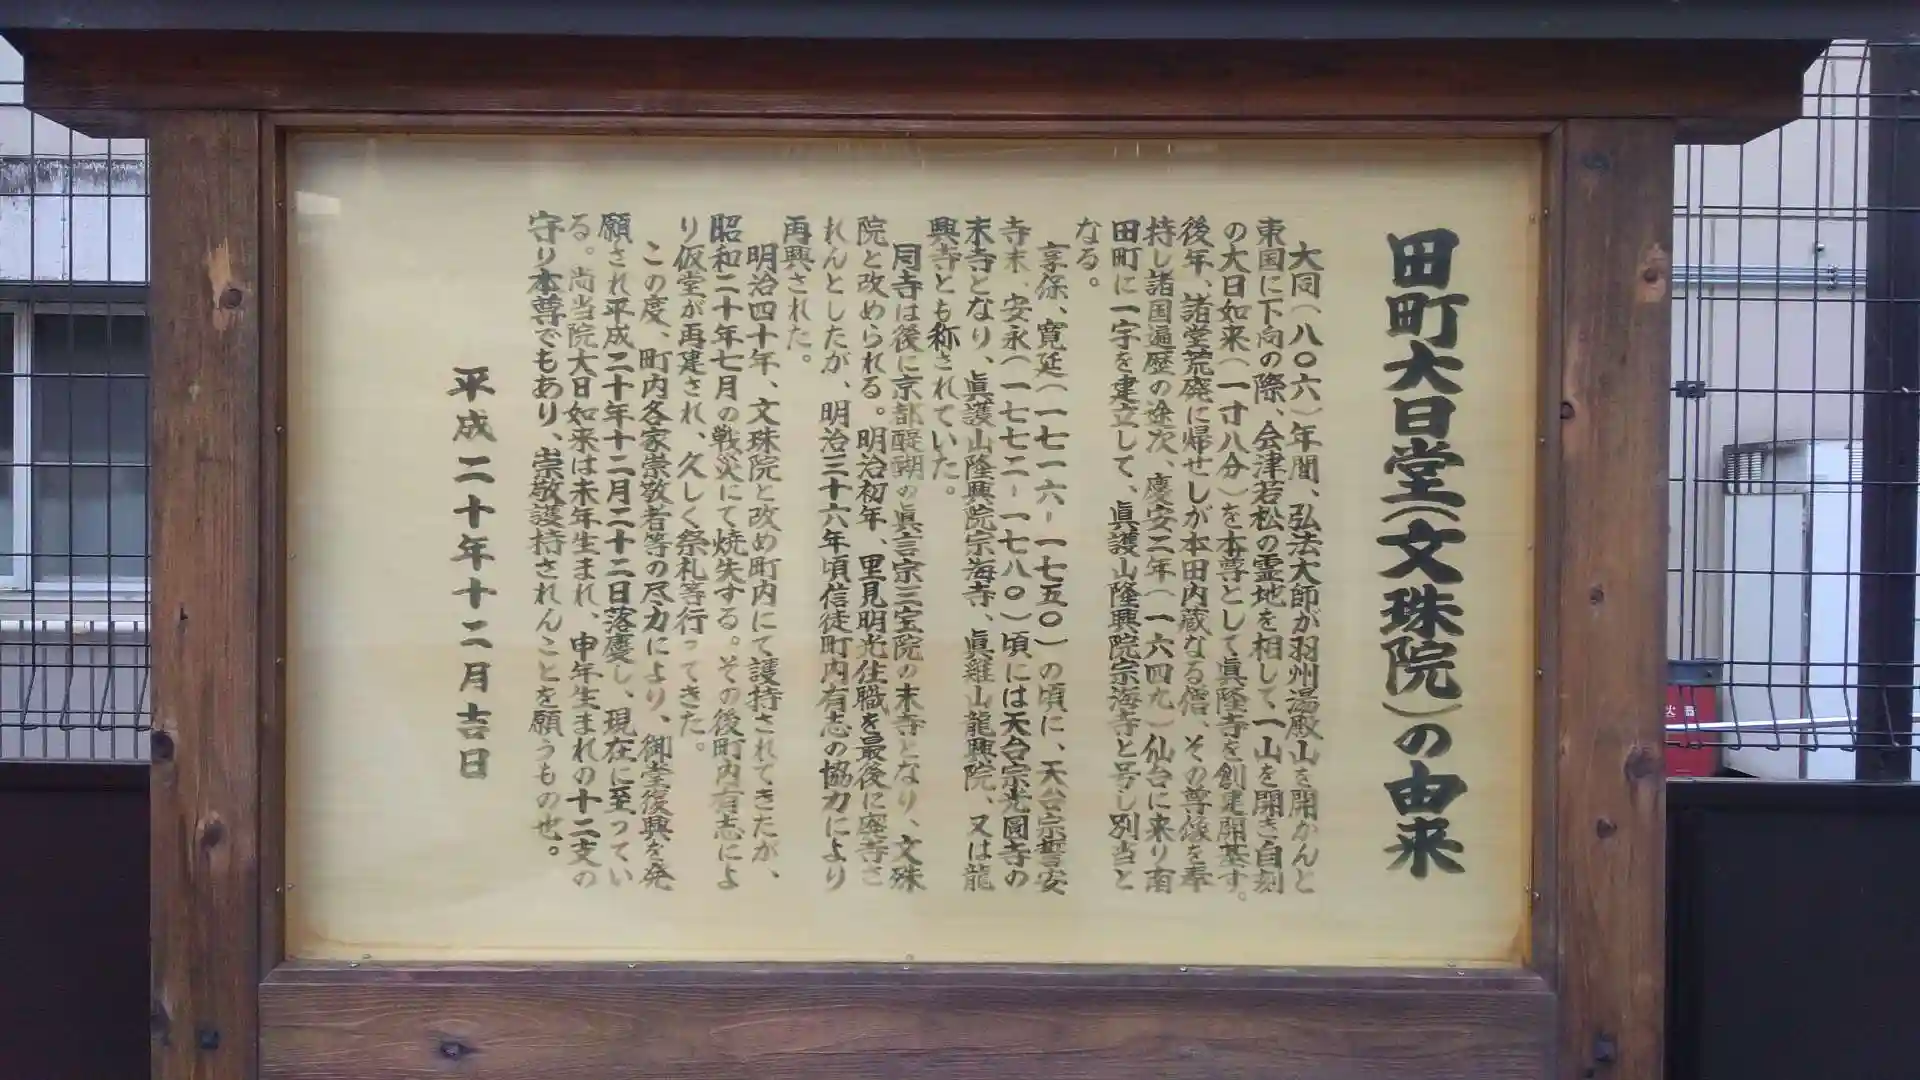 田町大日堂(文珠院)の由来
大同(八〇六)年間、弘法大師が羽州湯殿山を開かんと
東国に下向の際、会津若松の霊地を相して、一山を開き自刻
の大日如来(一寸八分)を本尊として眞隆寺を創建開基す。
後年、諸堂荒廃に帰せしが本田内蔵なる僧、その尊像を奉
持し諸国遍歴の途次、慶安二年(一六四九)仙台に来り南
田町に一宇を建立して、眞護山隆興院宗海寺と号し別当と
なる。
享保、寛延(一七一六-一七五〇)の頃に、天台宗誓安
寺末、安永(一七七二-一七八〇)頃には天台宗光圓寺の
末寺となり、眞護山隆興院宗海寺、眞雞山龍興院、又は龍
興寺とも称されていた。
同寺は後に京都醍醐の眞言宗三宝院の末寺となり、文珠
院と改められる。明治初年、里見明光住職を最後に廃寺さ
れんとしたが、明治三十六年頃信徒町内有志の協力により
再興された。
明治四十年、文珠院と改め町内にて護持されてきたが、
昭和二十年七月の戦災にて焼失する。その後町内有志によ
り仮堂が再建され、久しく祭礼等行ってきた。
この度、町内各家崇敬者等の尽力により、御堂復興を発
願され平成二十年十二月二十二日落慶し、現在に至ってい
る。尚当院大日如来は未年生まれ、申年生まれの十二支の
守り本尊でもあり、崇敬護持されんことを願うもの也。
平成二十年十二月吉日
火器